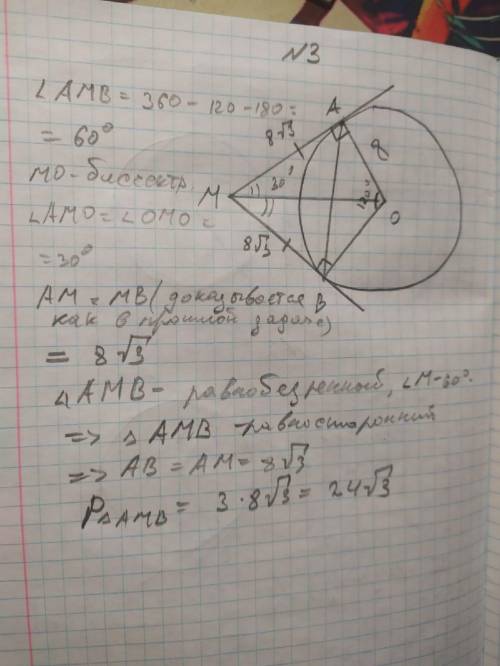 N3
∠AMB = 360 - 120 - 180 =
= 60°
MO - биссектр.
∠AMO = ∠OMO =
= 30°
AM = MB (доказывается
как в прошлой задаче)
= 8√3
△AMB - равнобедренный, ∠M - 60°.
=> △AMB - равносторонний
=> AB = AM = 8√3
P△AMB = 3·8√3 = 24√3
A
8√3
8
M
30°
O
8√3
B